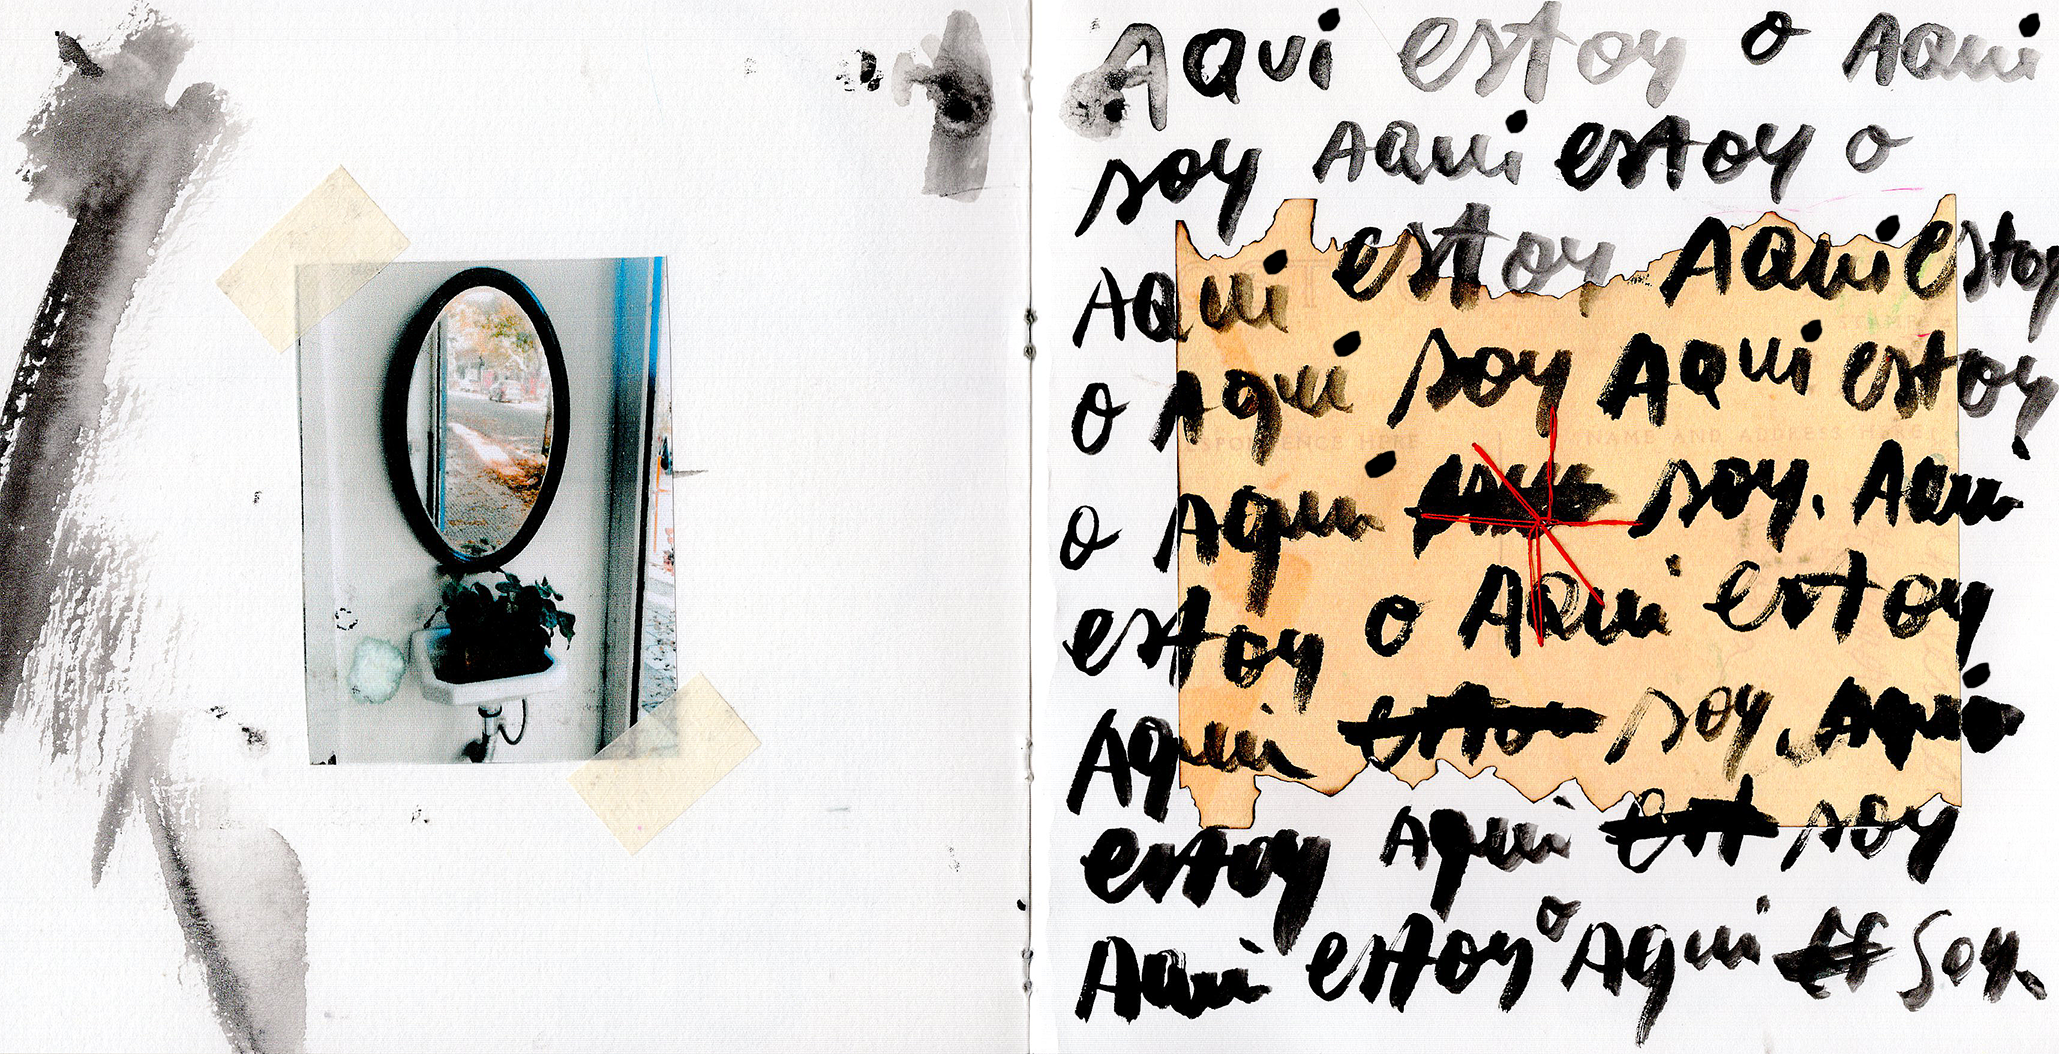 Aqui estoy o Aqui
soy Aqui estoy o
Aqui estoy Aqui estoy
o Aqui soy Aqui estoy
SPONDENCE HERE
NAME AND ADDRESS HERE
o Aqui soy. Aqui
estoy o Aqui estoy
Aqui soy, Aqui
estoy Aqui est soy
Aqui estoy o Aqui soy